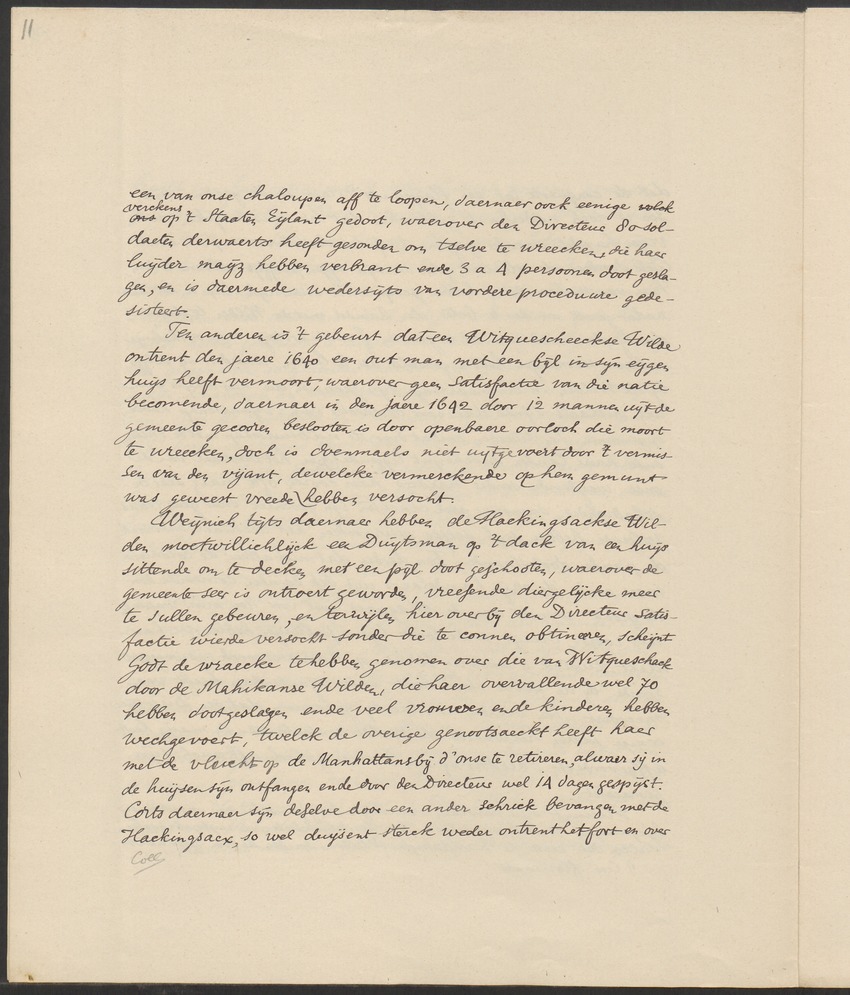 11
een van onse chaloupen aff te loopen, daernaer oock eenige volck
verckens
ons op 't Staaten Eÿlant gedoot, waerover den Directeur 80 sol-
daeten derwaerts heeft gesonden om tselve te wreecken, die haer
luÿder maÿz hebben verbrant ende 3 a 4 persoonen doot gesla-
gen, en is daermede wedersÿts van vordere proceduure gede-
sisteert.
Ten anderen is 't gebeurt dat een Witquescheeckse Wilde
ontrent den jaere 1640 een out man met een bÿl in sÿn eÿgen
huÿs heeft vermoort, waerover geen Satisfactie van die natie
becomende, daernaer in den jaere 1642 door 12 mannen uÿt de
gemeente gecooren beslooten is door openbaere oorloch die moort
te wreecken, doch is doenmaels niet uÿtgevoert door 't vermis-
sen van den vijant, dewelcke vermerckende op hem gemunt
was geweest vreede hebben versocht.
Weÿnich tÿts daernaer hebben de Hackingsackse Wil-
den moetwillichlÿck een Duÿtsman op 't dack van een huÿs
sittende om te decken met een pÿl doot geschooten, waerover de
gemeente seer is ontroert geworden, vreesende diergelÿcke meer
te sullen gebeuren, en terwijlen hier over bÿ den Directeur Satis-
factie wierde versocht sonder die te connen obtineeren, scheÿnt
Godt de wraecke te hebben genomen over die van Witqueschack
door de Mahikanse Wilden, die haer overvallende wel 70
hebben dootgeslagen ende veel vrouwen ende kinderen hebben
wechgevoert, twelck de overige genootsaeckt heeft haer
met de vlucht op de Manhattans bÿ d'onse te retireren, alwaer sÿ in
de huÿsen sÿn ontfangen ende door den Directeur wel 14 dagen gespÿst.
Corts daernaer sÿn deselve door een ander schrick bevangen met de
Hackingsacx, so wel duÿsent sterck weder ontrent het fort en over
Coll